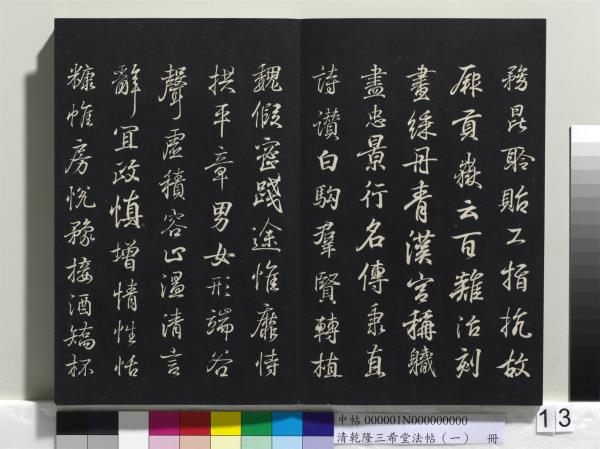 務昆聆貽工指抗故
厥貢嶽云百雞治刻
畫綵丹青漢宮稱軄
盡忠景行名傳秉直
詩讚白駒羣賢轉植
魏假密踐途惟靡恃
拱平章男女形端谷
聲虛積容止溫清言
辭宜政慎增情性恬
糠帷房悅豫接酒矯杯
中帖 000001N000000000
清乾隆三希堂法帖（一） 冊
13